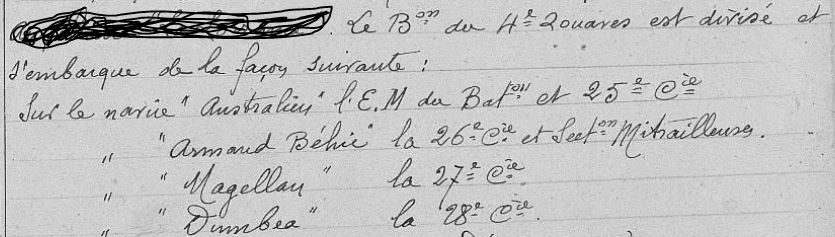 . Le B.on du 4e Zouaves est divisé et
s'embarque de la façon suivante :
Sur le navire "Australien" l'E.M du Bat.on et 25e Cie
" "Armand Béhic" la 26e Cie et Sect.on Mitrailleuses.
" "Magellan" la 27e Cie
" "Dumbea" la 28e Cie.